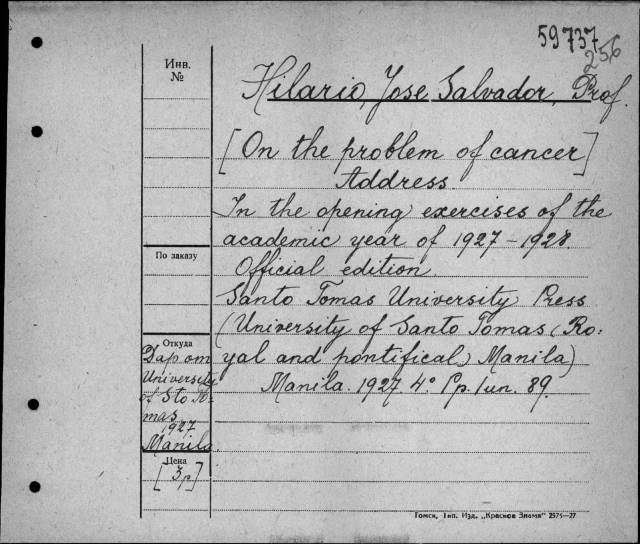 59737
256
Инв.
№
Hilario, Jose Salvador, Prof.
[On the problem of cancer]
Address.
In the opening exercises of the
academic year of 1927-1928.
По заказу
Official edition.
Santo Tomas University Press
(University of Santo Tomas (Ro:
yal and pontifical) Manila)
Manila. 1927. 4° Pp. 1 un. 89.
Откуда
Дар от
University
of Sto To-
mas
1927
Manila.
Цена
[3р]
Томск, Тип. Изд. „Красное Знамя" 2575—27